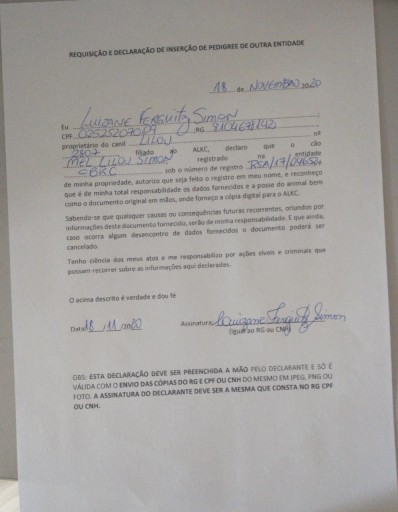 REQUISIÇÃO E DECLARAÇÃO DE INSERÇÃO DE PEDIGREE DE OUTRA ENTIDADE
18 de NOVEMBRO 2020
Eu Luizane Ferguitz Simon
CPF 02525207019 RG 8104678192
proprietário do canil LILOU nº
2807 filiado ao ALKC, declaro que o cão
MEL LILOU SIMON registrado na entidade
CBKC sob o número de registro RSA/17/04652
de minha propriedade, autorizo que seja feito o registro em meu nome, e reconheço
que é de minha total responsabilidade os dados fornecidos e a posse do animal bem
como o documento original em mãos, onde forneço a cópia digital para o ALKC.
Sabendo-se que quaisquer causas ou consequências futuras recorrentes, oriundos por
informações deste documento fornecido, serão de minha responsabilidade. E que ainda,
caso ocorra algum desencontro de dados fornecidos o documento poderá ser
cancelado.
Tenho ciência dos meus atos e me responsabilizo por ações cíveis e criminais que
possam recorrer sobre as informações aqui declaradas.
O acima descrito é verdade e dou fé
Data 18 / 11 /2020 Assinatura Luizane Ferguitz Simon
(Igual ao RG ou CNH)
OBS: ESTA DECLARAÇÃO DEVE SER PREENCHIDA A MÃO PELO DECLARANTE E SÓ É
VÁLIDA COM O ENVIO DAS CÓPIAS DO RG E CPF OU CNH DO MESMO EM JPEG, PNG OU
FOTO. A ASSINATURA DO DECLARANTE DEVE SER A MESMA QUE CONSTA NO RG CPF
OU CNH.